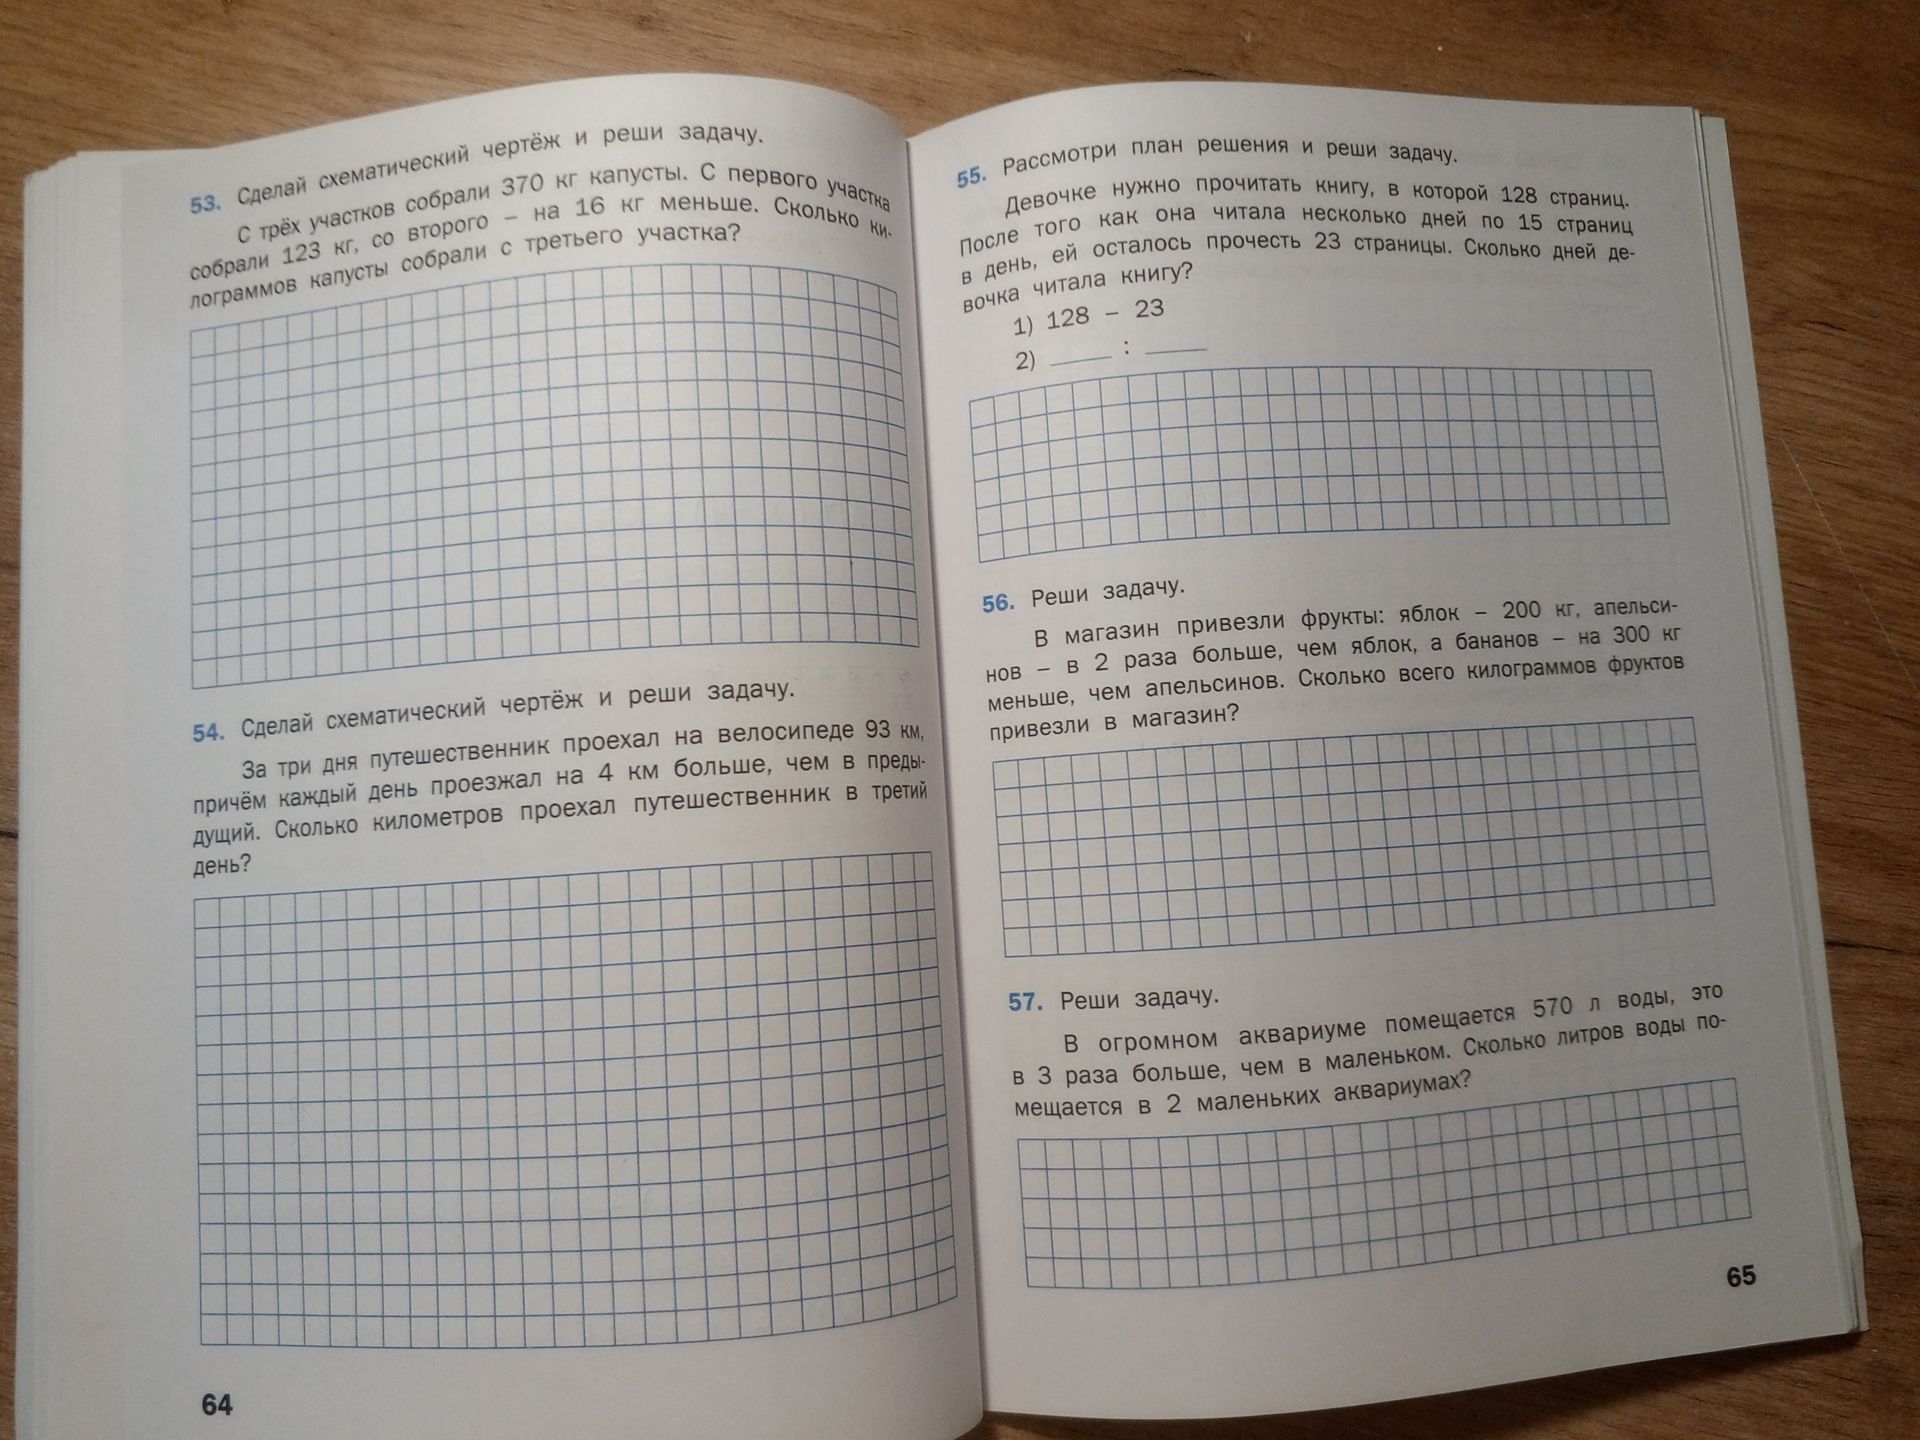 53. Сделай схематический чертёж и реши задачу.
С трёх участков собрали 370 кг капусты. С первого участка
собрали 123 кг, со второго – на 16 кг меньше. Сколько ки-
лограммов капусты собрали с третьего участка?
54. Сделай схематический чертёж и реши задачу.
За три дня путешественник проехал на велосипеде 93 км,
причём каждый день проезжал на 4 км больше, чем в преды-
дущий. Сколько километров проехал путешественник в третий
день?
64
55. Рассмотри план решения и реши задачу.
Девочке нужно прочитать книгу, в которой 128 страниц.
После того как она читала несколько дней по 15 страниц
в день, ей осталось прочесть 23 страницы. Сколько дней де-
вочка читала книгу?
1) 128 – 23
2) ____ : ____
56. Реши задачу.
В магазин привезли фрукты: яблок – 200 кг, апельси-
нов – в 2 раза больше, чем яблок, а бананов – на 300 кг
меньше, чем апельсинов. Сколько всего килограммов фруктов
привезли в магазин?
57. Реши задачу.
В огромном аквариуме помещается 570 л воды, это
в 3 раза больше, чем в маленьком. Сколько литров воды по-
мещается в 2 маленьких аквариумах?
65